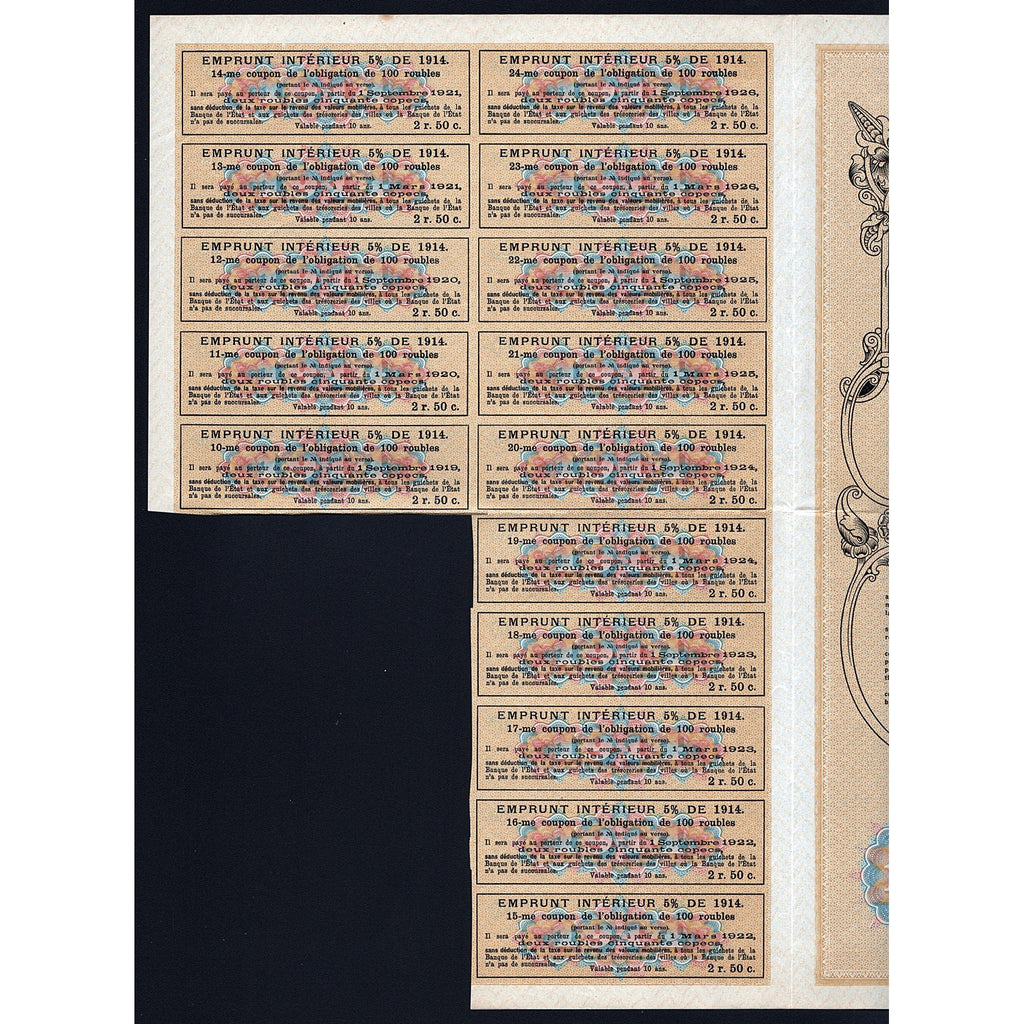 EMPRUNT INTÉRIEUR 5% DE 1914.
14-me coupon de l'obligation de 100 roubles
(portant le № indiqué au verso).
Il sera payé au porteur de ce coupon, à partir du 1 Septembre 1921,
deux roubles cinquante copecs,
sans déduction de la taxe sur le revenu des valeurs mobilières, à tous les guichets de la
Banque de l'État et aux guichets des trésoreries des villes où la Banque de l'État
n'a pas de succursales.
Valable pendant 10 ans. 2 r. 50 c.
EMPRUNT INTÉRIEUR 5% DE 1914.
13-me coupon de l'obligation de 100 roubles
(portant le № indiqué au verso).
Il sera payé au porteur de ce coupon, à partir du 1 Mars 1921,
deux roubles cinquante copecs,
sans déduction de la taxe sur le revenu des valeurs mobilières, à tous les guichets de la
Banque de l'État et aux guichets des trésoreries des villes où la Banque de l'État
n'a pas de succursales.
Valable pendant 10 ans. 2 r. 50 c.
EMPRUNT INTÉRIEUR 5% DE 1914.
12-me coupon de l'obligation de 100 roubles
(portant le № indiqué au verso).
Il sera payé au porteur de ce coupon, à partir du 1 Septembre 1920,
deux roubles cinquante copecs,
sans déduction de la taxe sur le revenu des valeurs mobilières, à tous les guichets de la
Banque de l'État et aux guichets des trésoreries des villes où la Banque de l'État
n'a pas de succursales.
Valable pendant 10 ans. 2 r. 50 c.
EMPRUNT INTÉRIEUR 5% DE 1914.
11-me coupon de l'obligation de 100 roubles
(portant le № indiqué au verso).
Il sera payé au porteur de ce coupon, à partir du 1 Mars 1920,
deux roubles cinquante copecs,
sans déduction de la taxe sur le revenu des valeurs mobilières, à tous les guichets de la
Banque de l'État et aux guichets des trésoreries des villes où la Banque de l'État
n'a pas de succursales.
Valable pendant 10 ans. 2 r. 50 c.
EMPRUNT INTÉRIEUR 5% DE 1914.
10-me coupon de l'obligation de 100 roubles
(portant le № indiqué au verso).
Il sera payé au porteur de ce coupon, à partir du 1 Septembre 1919,
deux roubles cinquante copecs,
sans déduction de la taxe sur le revenu des valeurs mobilières, à tous les guichets de la
Banque de l'État et aux guichets des trésoreries des villes où la Banque de l'État
n'a pas de succursales.
Valable pendant 10 ans. 2 r. 50 c.
EMPRUNT INTÉRIEUR 5% DE 1914.
24-me coupon de l'obligation de 100 roubles
(portant le № indiqué au verso).
Il sera payé au porteur de ce coupon, à partir du 1 Septembre 1926,
deux roubles cinquante copecs,
sans déduction de la taxe sur le revenu des valeurs mobilières, à tous les guichets de la
Banque de l'État et aux guichets des trésoreries des villes où la Banque de l'État
n'a pas de succursales.
Valable pendant 10 ans. 2 r. 50 c.
EMPRUNT INTÉRIEUR 5% DE 1914.
23-me coupon de l'obligation de 100 roubles
(portant le № indiqué au verso).
Il sera payé au porteur de ce coupon, à partir du 1 Mars 1926,
deux roubles cinquante copecs,
sans déduction de la taxe sur le revenu des valeurs mobilières, à tous les guichets de la
Banque de l'État et aux guichets des trésoreries des villes où la Banque de l'État
n'a pas de succursales.
Valable pendant 10 ans. 2 r. 50 c.
EMPRUNT INTÉRIEUR 5% DE 1914.
22-me coupon de l'obligation de 100 roubles
(portant le № indiqué au verso).
Il sera payé au porteur de ce coupon, à partir du 1 Septembre 1925,
deux roubles cinquante copecs,
sans déduction de la taxe sur le revenu des valeurs mobilières, à tous les guichets de la
Banque de l'État et aux guichets des trésoreries des villes où la Banque de l'État
n'a pas de succursales.
Valable pendant 10 ans. 2 r. 50 c.
EMPRUNT INTÉRIEUR 5% DE 1914.
21-me coupon de l'obligation de 100 roubles
(portant le № indiqué au verso).
Il sera payé au porteur de ce coupon, à partir du 1 Mars 1925,
deux roubles cinquante copecs,
sans déduction de la taxe sur le revenu des valeurs mobilières, à tous les guichets de la
Banque de l'État et aux guichets des trésoreries des villes où la Banque de l'État
n'a pas de succursales.
Valable pendant 10 ans. 2 r. 50 c.
EMPRUNT INTÉRIEUR 5% DE 1914.
20-me coupon de l'obligation de 100 roubles
(portant le № indiqué au verso).
Il sera payé au porteur de ce coupon, à partir du 1 Septembre 1924,
deux roubles cinquante copecs,
sans déduction de la taxe sur le revenu des valeurs mobilières, à tous les guichets de la
Banque de l'État et aux guichets des trésoreries des villes où la Banque de l'État
n'a pas de succursales.
Valable pendant 10 ans. 2 r. 50 c.
EMPRUNT INTÉRIEUR 5% DE 1914.
19-me coupon de l'obligation de 100 roubles
(portant le № indiqué au verso).
Il sera payé au porteur de ce coupon, à partir du 1 Mars 1924,
deux roubles cinquante copecs,
sans déduction de la taxe sur le revenu des valeurs mobilières, à tous les guichets de la
Banque de l'État et aux guichets des trésoreries des villes où la Banque de l'État
n'a pas de succursales.
Valable pendant 10 ans. 2 r. 50 c.
EMPRUNT INTÉRIEUR 5% DE 1914.
18-me coupon de l'obligation de 100 roubles
(portant le № indiqué au verso).
Il sera payé au porteur de ce coupon, à partir du 1 Septembre 1923,
deux roubles cinquante copecs,
sans déduction de la taxe sur le revenu des valeurs mobilières, à tous les guichets de la
Banque de l'État et aux guichets des trésoreries des villes où la Banque de l'État
n'a pas de succursales.
Valable pendant 10 ans. 2 r. 50 c.
EMPRUNT INTÉRIEUR 5% DE 1914.
17-me coupon de l'obligation de 100 roubles
(portant le № indiqué au verso).
Il sera payé au porteur de ce coupon, à partir du 1 Mars 1923,
deux roubles cinquante copecs,
sans déduction de la taxe sur le revenu des valeurs mobilières, à tous les guichets de la
Banque de l'État et aux guichets des trésoreries des villes où la Banque de l'État
n'a pas de succursales.
Valable pendant 10 ans. 2 r. 50 c.
EMPRUNT INTÉRIEUR 5% DE 1914.
16-me coupon de l'obligation de 100 roubles
(portant le № indiqué au verso).
Il sera payé au porteur de ce coupon, à partir du 1 Septembre 1922,
deux roubles cinquante copecs,
sans déduction de la taxe sur le revenu des valeurs mobilières, à tous les guichets de la
Banque de l'État et aux guichets des trésoreries des villes où la Banque de l'État
n'a pas de succursales.
Valable pendant 10 ans. 2 r. 50 c.
EMPRUNT INTÉRIEUR 5% DE 1914.
15-me coupon de l'obligation de 100 roubles
(portant le № indiqué au verso).
Il sera payé au porteur de ce coupon, à partir du 1 Mars 1922,
deux roubles cinquante copecs,
sans déduction de la taxe sur le revenu des valeurs mobilières, à tous les guichets de la
Banque de l'État et aux guichets des trésoreries des villes où la Banque de l'État
n'a pas de succursales.
Valable pendant 10 ans. 2 r. 50 c.